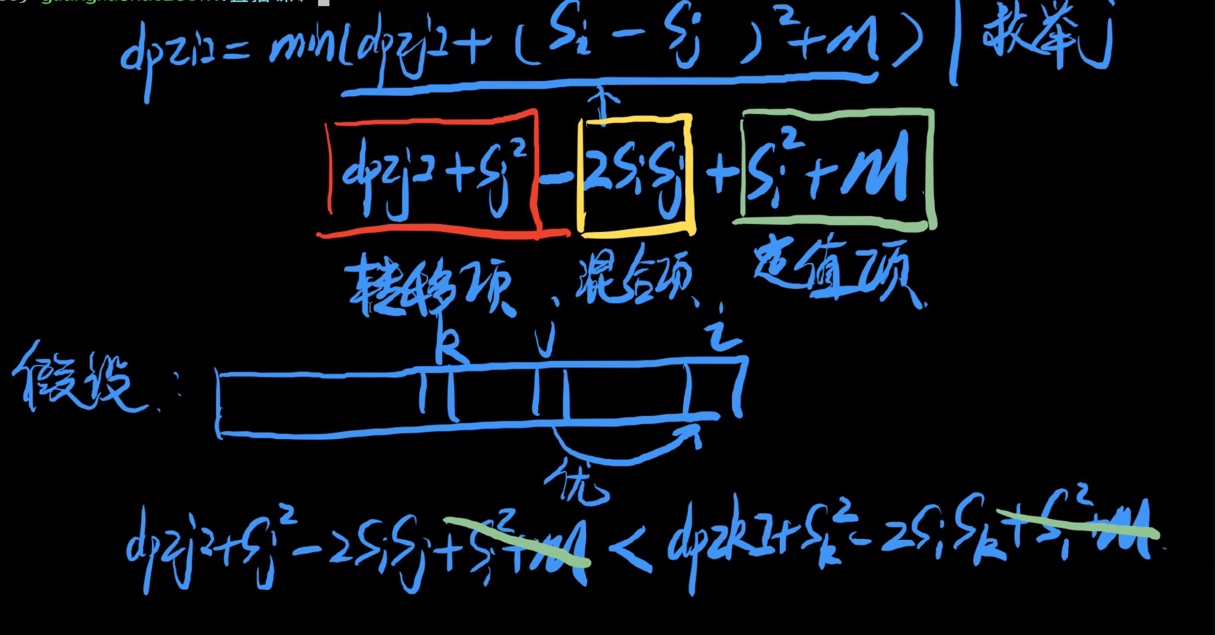 dp[i] = min(dp[j] + (Si - Sj )² + M) | 枚举j
dp[j] + Sj² - 2SiSj + Si² + M
转移项、混合项、定值项
k j i
假设:
优
dp[j] + Sj² - 2SiSj + Si² + M < dp[k] + Sk² - 2SiSk + Si² + M